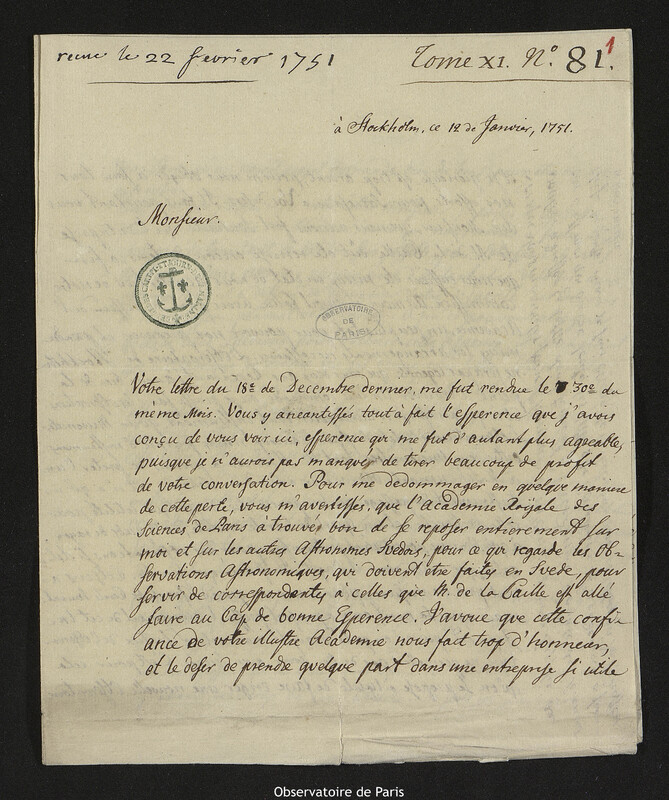 recue le 22 fevrier 1751
Tome XI. N.º 81.
1
à Stockholm, ce 12 de Janvier, 1751.
Monsieur.
OBSERVATOIRE
DE
PARIS
Votre lettre du 18e de Decembre dernier, me fut rendue le 30e du
même Mois. Vous y aneantissés tout à fait l'esperence que j'avois
conçu de vous voir ici, esperence qui me fut d'autant plus agreable,
puisque je n'aurois pas manqué de tirer beaucoup de profit
de votre conversation. Pour me dedommager en quelque maniere
de cette perte, vous m'avertissés, que l'Academie Roijale des
Sciences de Paris à trouvés bon de se reposer entierement sur
moi et sur les autres Astronomes Svedois, pour ce qui regarde les Ob-
servations Astronomiques, qui doivent etre faites en Svede, pour
servir de correspondentes à celles que M. de la Caille est allé
faire au Cap de bonne Esperence. J'avoue que cette confi-
ance de votre illustre Academie nous fait trop d'honneur,
et le desir de prendre quelque part dans une entreprise si utile
Observatoire de Paris